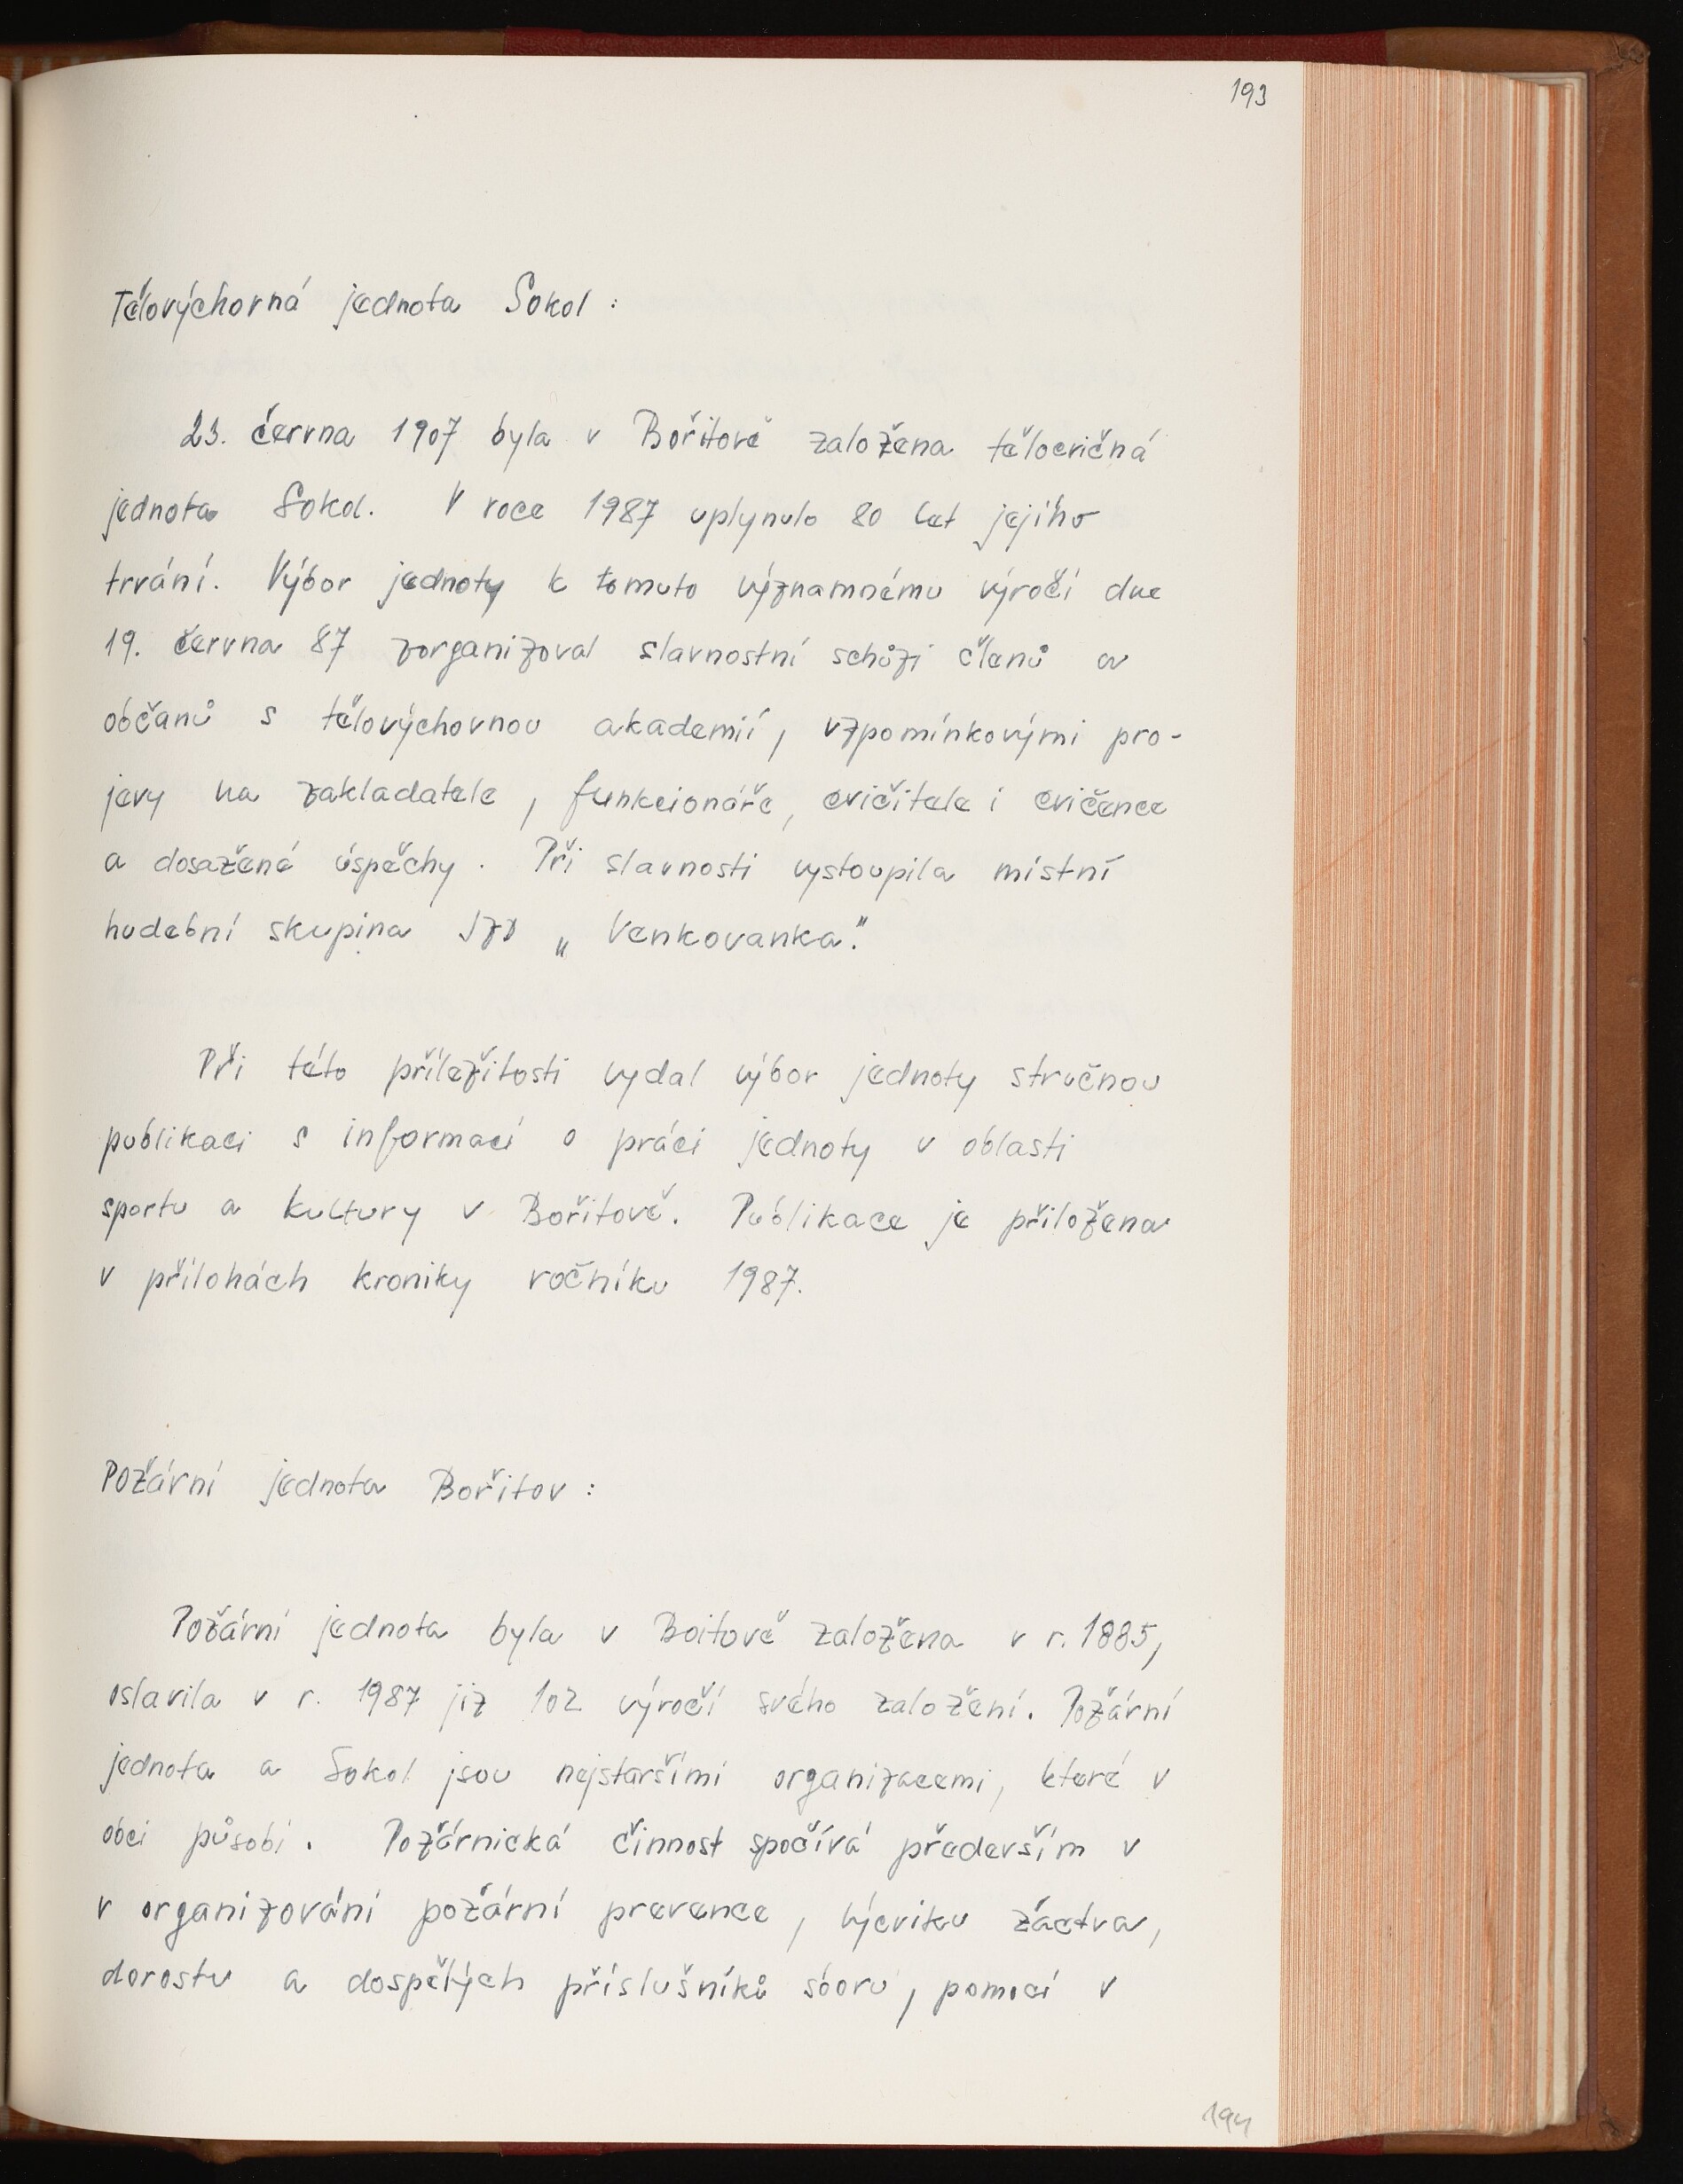 193
Tělovýchovná jednota Sokol :
23. června 1907 byla v Bořitově založena tělocvičná
jednota Sokol. V roce 1987 uplynulo 80 let jejího
trvání. Výbor jednoty k tomuto významnému výročí dne
19. června 87 zorganizoval slavnostní schůzi členů a
občanů s tělovýchovnou akademií, vzpomínkovými pro-
jevy na zakladatele, funkcionáře, cvičitele i cvičence
a dosažené úspěchy. Při slavnosti vystoupila místní
hudební skupina JZD „Venkovanka".
Při této příležitosti vydal výbor jednoty stručnou
publikaci s informací o práci jednoty v oblasti
sportu a kultury v Bořitově. Publikace je přiložena
v přílohách kroniky ročníku 1987.
Požární jednota Bořitov :
Požární jednota byla v Boitově založena v r. 1885,
oslavila v r. 1987 již 102 výročí svého založení. Požární
jednota a Sokol jsou nejstaršími organizacemi, které v
obci působí. Požárnická činnost spočívá především v
v organizování požární prevence, výcviku žactva,
dorostu a dospělých příslušníků sboru, pomocí v
194